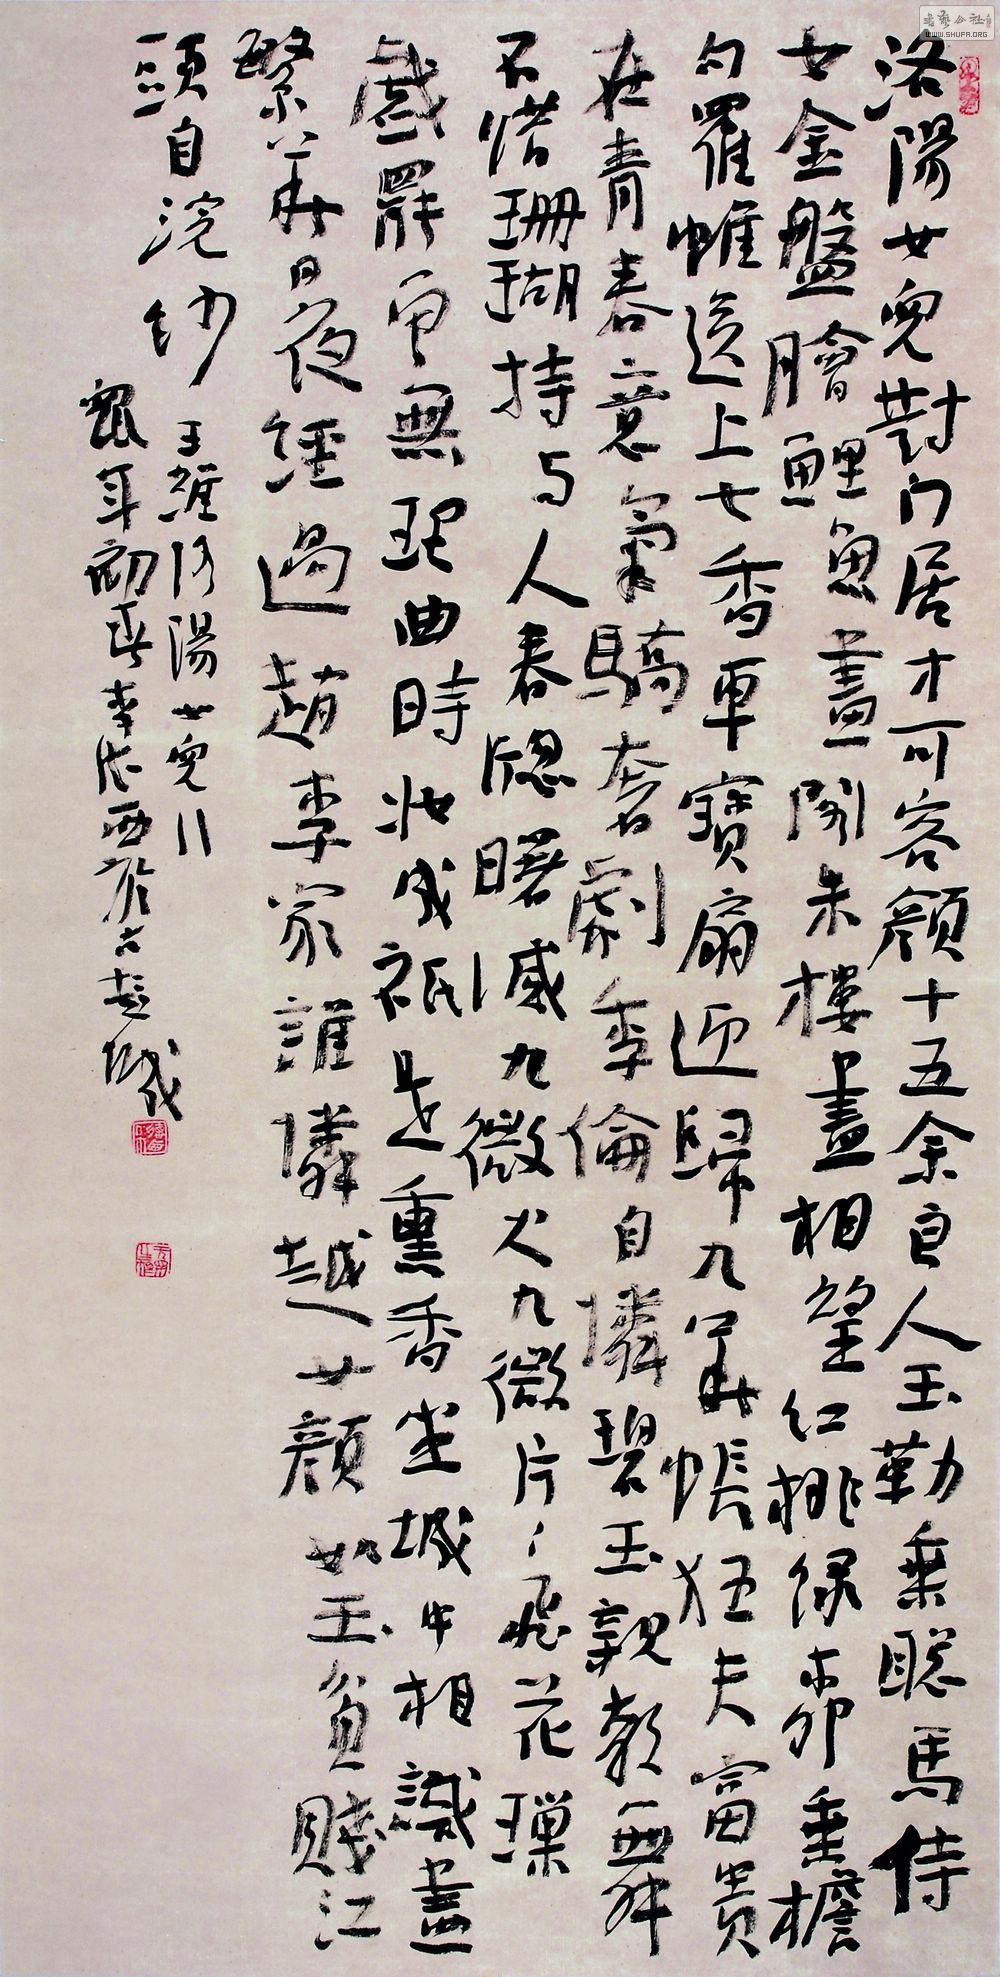 洛陽女兒對门居才可容顏十五余良人玉勒乘聪馬侍
女金盤膾鯉魚畫閣朱樓盡相望红桃绿柳垂檐
向羅帷送上七香車寶扇迎歸九華帳狂夫富贵
在青春意氣驕奢劇季倫自憐碧玉親教舞
不惜珊瑚持与人春牕曙滅九微火九微片々飛花璅
戲罷曾無理曲時妝成祇是熏香坐城中相識盡
繁華日夜經過趙李家誰憐越女顏如玉貧賤江
頭自浣纱
王維洛陽女兒行
鼠年初春李西於古越城
WWW.SHUFA.ORG